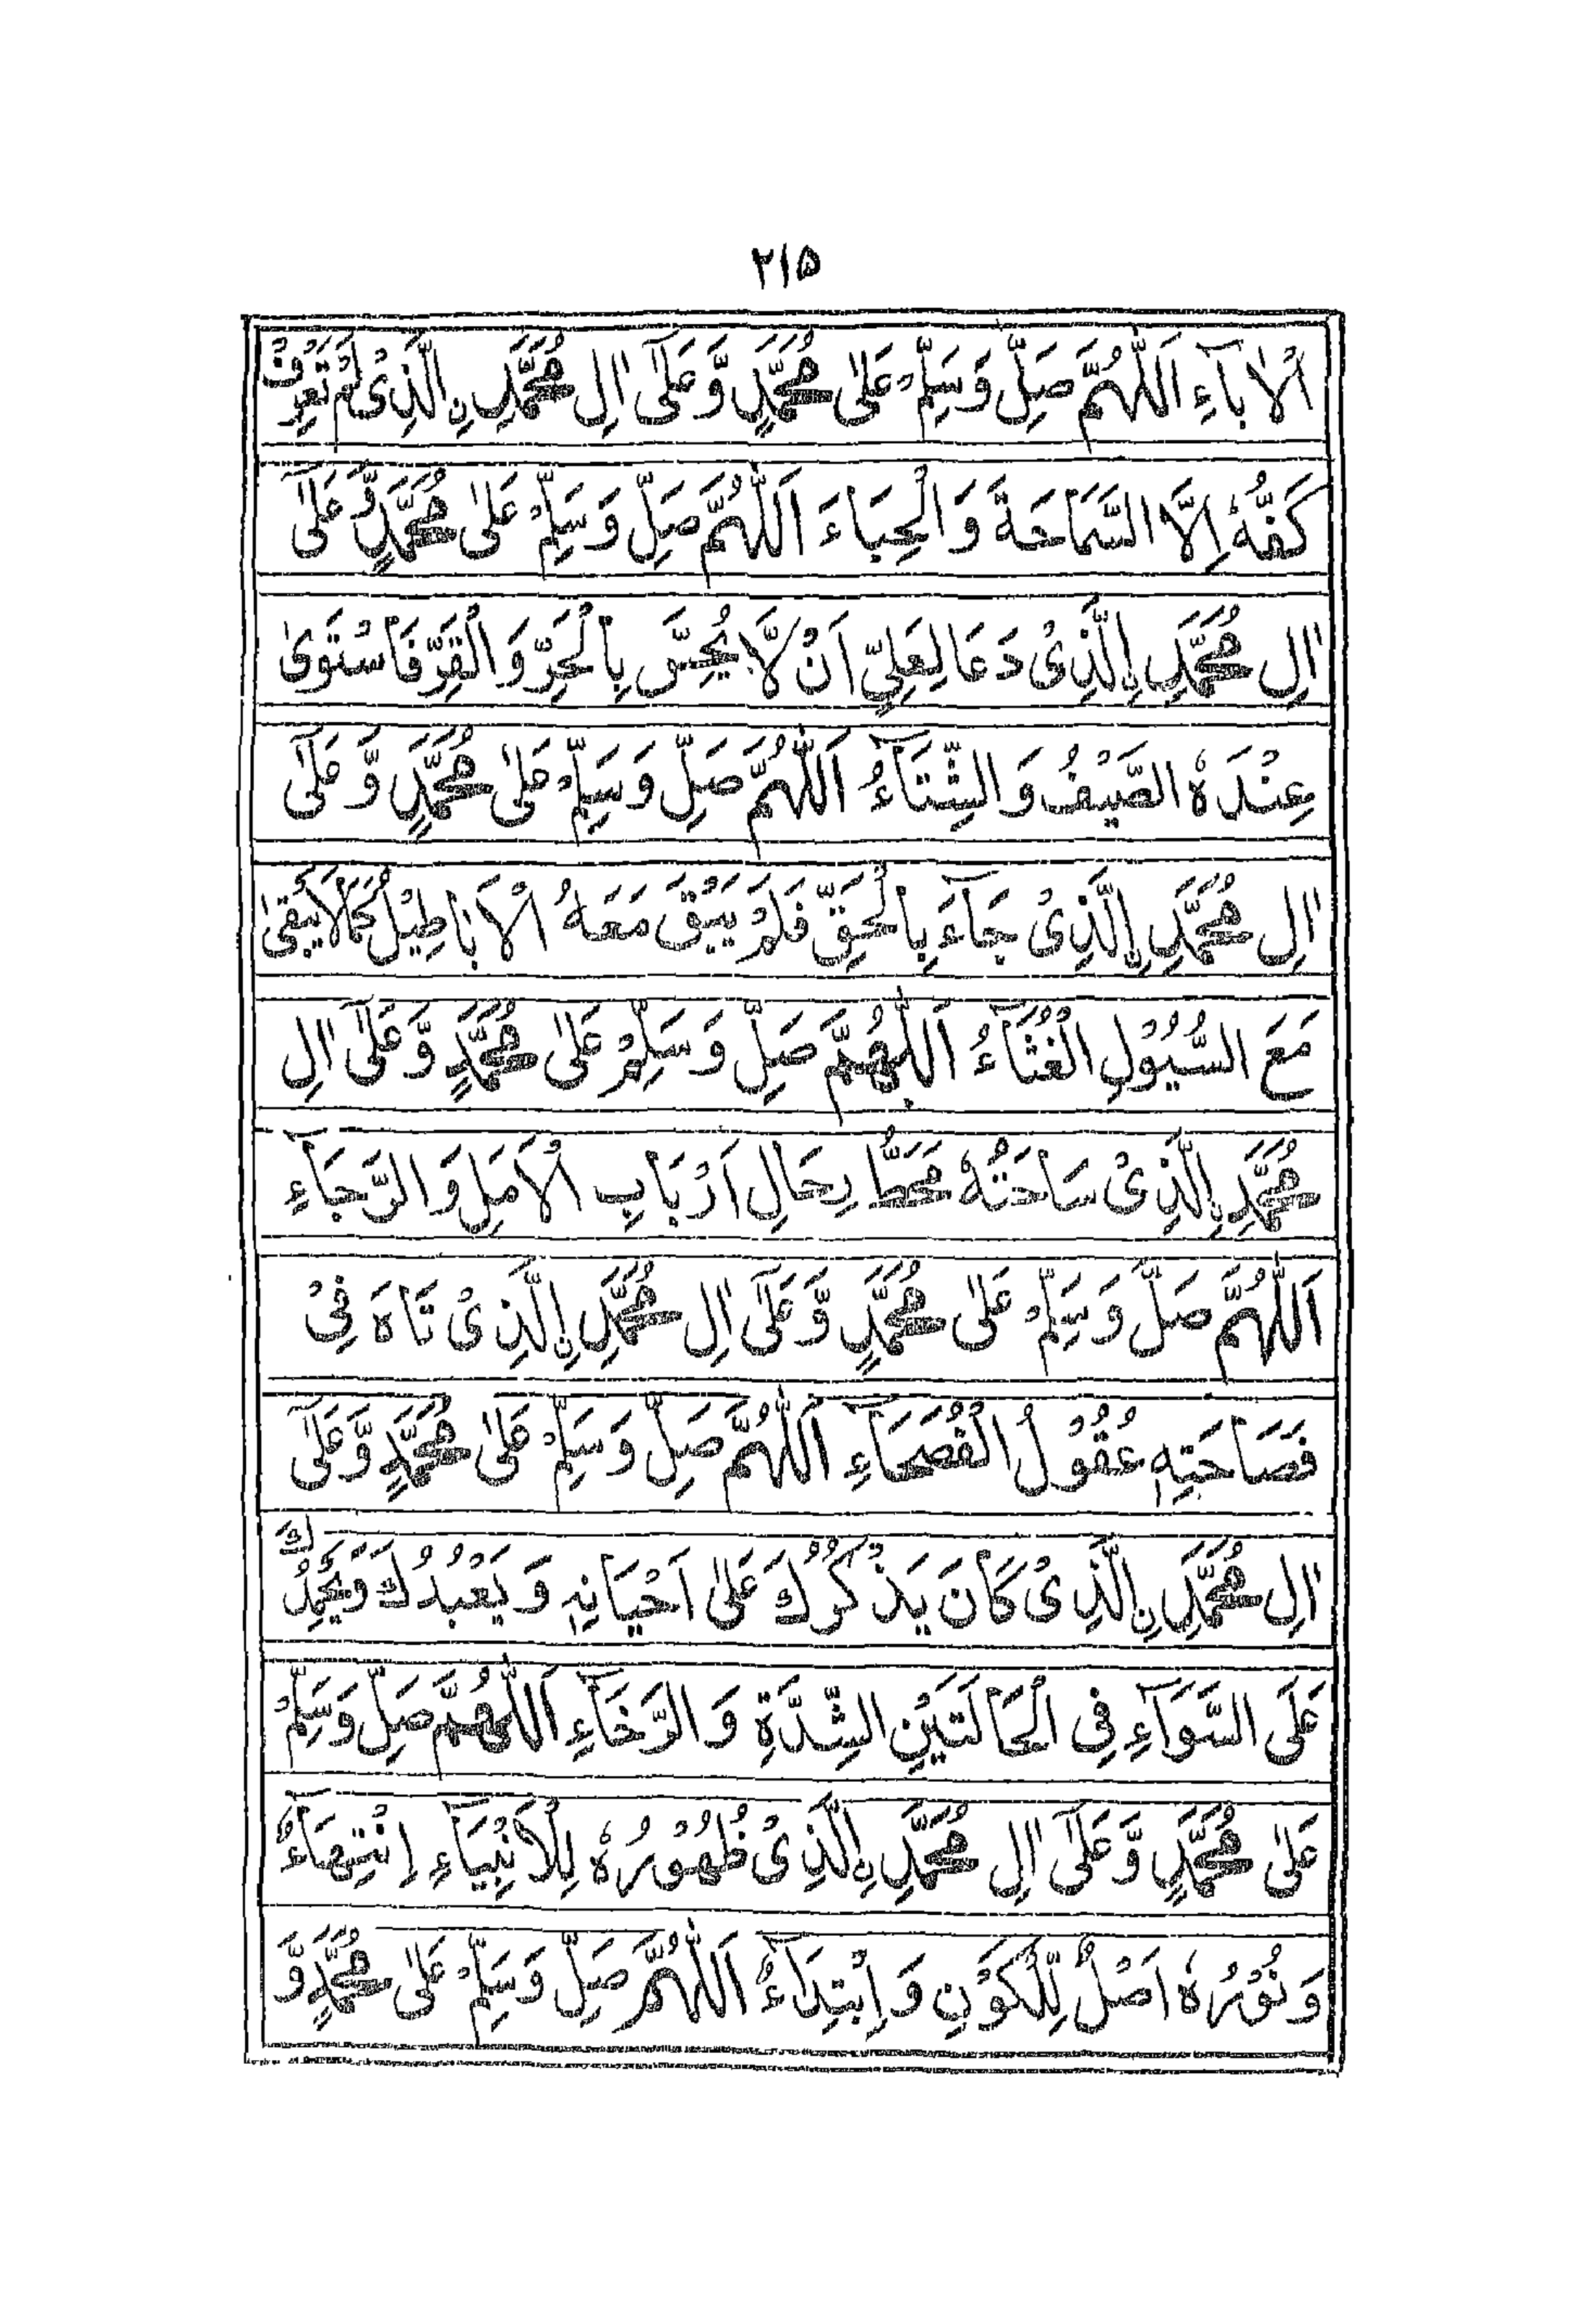 ۲۱۵
الْاٰبَآءِ اَللّٰهُمَّ صَلِّ وَسَلِّمْ عَلٰى مُحَمَّدٍ وَّعَلٰٓى اٰلِ مُحَمَّدِنِ الَّذِىْ لَمْ تَعْرِفْ
كَفُّهٗ اِلَّا السَّمَاحَةَ وَالْحِبَاءَ اَللّٰهُمَّ صَلِّ وَسَلِّمْ عَلٰى مُحَمَّدٍ وَّعَلٰٓى
اٰلِ مُحَمَّدِ نِ الَّذِىْ دَعَا لِعَلِيٍّ اَنْ لَّا يُحِسَّ بِالْحَرِّ وَالْقَرِّ فَاسْتَوٰى
عِنْدَهُ الصَّيْفُ وَالشِّتَآءُ اَللّٰهُمَّ صَلِّ وَسَلِّمْ عَلٰى مُحَمَّدٍ وَّعَلٰٓى
اٰلِ مُحَمَّدِ نِ الَّذِىْ جَآءَ بِالْحَقِّ فَلَمْ يَبْقَ مَعَهُ الْاَبَاطِيْلُ كَمَا لَا يَبْقٰى
مَعَ السُّيُوْلِ الْغُثَآءُ اَللّٰهُمَّ صَلِّ وَسَلِّمْ عَلٰى مُحَمَّدٍ وَّعَلٰٓى اٰلِ
مُحَمَّدِ نِ الَّذِىْ سَاحَتُهٗ مَحَطُّ رِحَالِ اَرْبَابِ الْاَمَلِ وَالرَّجَآءِ
اَللّٰهُمَّ صَلِّ وَسَلِّمْ عَلٰى مُحَمَّدٍ وَّعَلٰٓى اٰلِ مُحَمَّدِ نِ الَّذِىْ تَاهَ فِىْ
فَصَاحَتِهٖ عُقُوْلُ الْفُصَحَآءِ اَللّٰهُمَّ صَلِّ وَسَلِّمْ عَلٰى مُحَمَّدٍ وَّعَلٰٓى
اٰلِ مُحَمَّدِ نِ الَّذِىْ كَانَ يَذْكُرُكَ عَلٰى اَحْيَانِهٖ وَيَعْبُدُكَ وَيَحْمَدُكَ
عَلَى السَّوَآءِ فِى الْحَالَتَيْنِ الشِّدَّةِ وَالرَّخَآءِ اَللّٰهُمَّ صَلِّ وَسَلِّمْ
عَلٰى مُحَمَّدٍ وَّعَلٰٓى اٰلِ مُحَمَّدِ نِ الَّذِىْ ظُهُوْرُهٗ لِلْاَنْبِيَآءِ اِنْتِهَآءٌ
وَنُوْرُهٗ اَصْلٌ لِّلْكَوْنِ وَاِبْتِدَآءٌ اَللّٰهُمَّ صَلِّ وَسَلِّمْ عَلٰى مُحَمَّدٍ وَّ